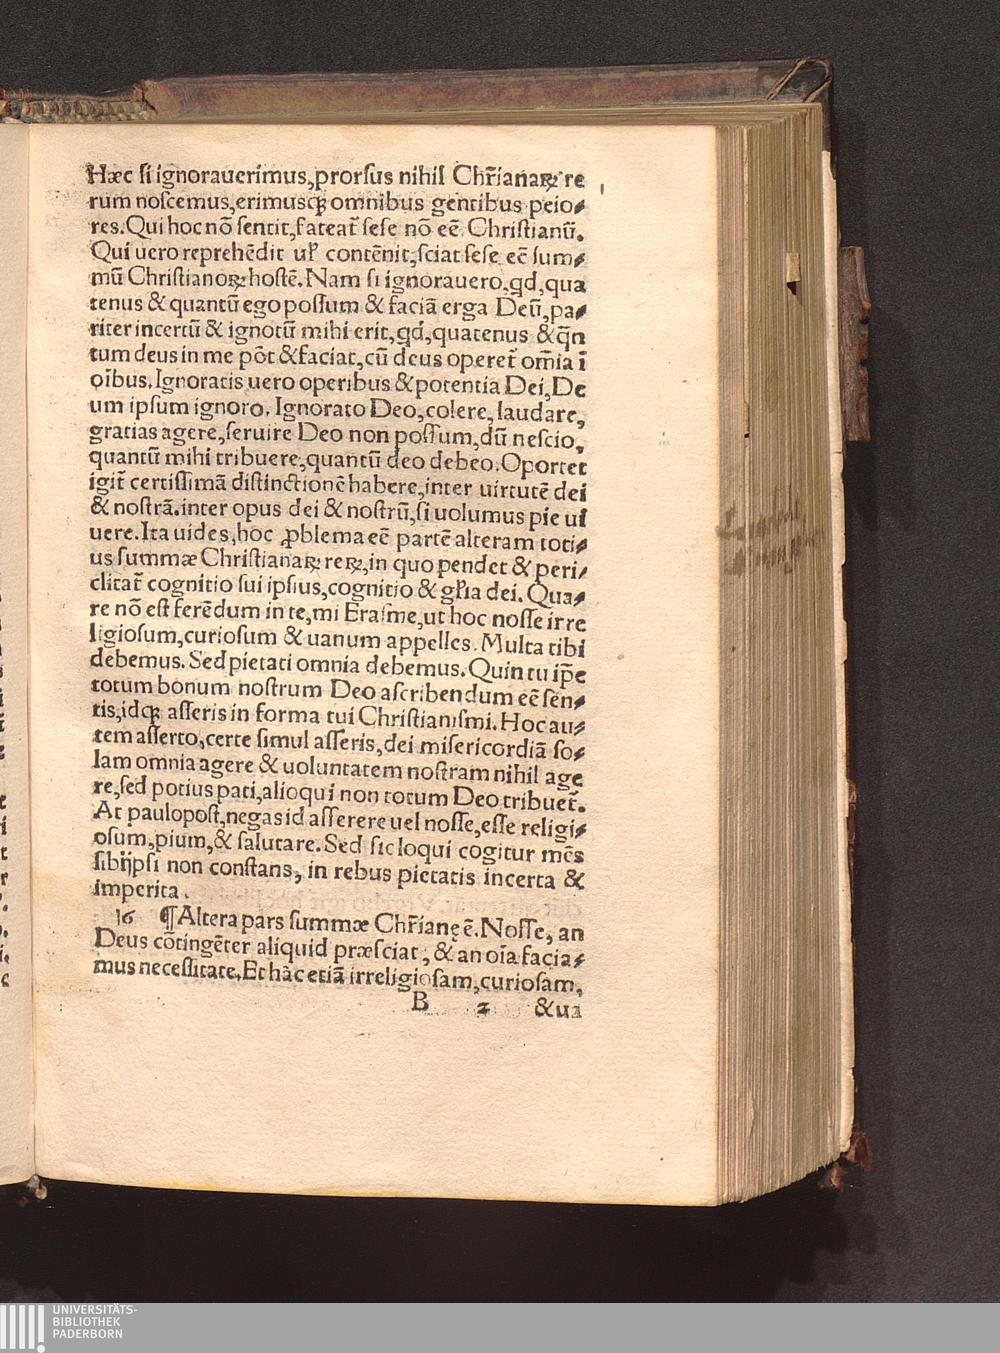 Hæc si ignorauerimus,prorsus nihil Chr̃ianaꝝ re
rum noscemus,erimusqꝫ omnibus gentibus peio⸗
res.Qui hoc nõ sentit,fateat᷑ sese nõ eẽ Christianũ.
Qui uero reprehẽdit uł contẽnit,sciat sese eẽ sum⸗
mũ Christianoꝝ hostẽ.Nam si ignorauero,qd,qua
tenus & quantũ ego possum & faciã erga Deũ,pa⸗
riter incertũ & ignotũ mihi erit,qd,quatenus & q̃n
tum deus in me põt & faciat,cũ deus operet᷑ om̃ia ĩ
oĩbus.Ignoratis uero operibus & potentia Dei,De
um ipsum ignoro. Ignorato Deo,colere,laudare,
gratias agere,seruire Deo non possum,dũ nescio,
quantũ mihi tribuere,quantũ deo debeo.Oportet
igit᷑ certissimã distinctionẽ habere,inter uirtutẽ dei
& nostrã.inter opus dei & nostrũ,si uolumus pie ui
uere.Ita uides,hoc ꝓblema eẽ partẽ alteram toti⸗
us summæ Christianaꝝ reꝝ,in quo pendet & peri⸗
clitat᷑ cognitio sui ipsius,cognitio & głia dei. Qua⸗
re nõ est ferẽdum in te,mi Erasme,ut hoc nosse irre
ligiosum,curiosum & uanum appelles. Multa tibi
debemus. Sed pietati omnia debemus. Quin tu ip̃e
totum bonum nostrum Deo ascribendum eẽ sen⸗
tis,idqꝫ asseris in forma tui Christianismi. Hoc au⸗
tem asserto,certe simul asseris,dei misericordiã so⸗
lam omnia agere & uoluntatem nostram nihil age
re,sed potius pati,alioqui non totum Deo tribuet᷑.
At paulopost,negas id asserere uel nosse,esse religi⸗
osum,pium,& salutare. Sed sic loqui cogitur mẽs
sibijpsi non constans, in rebus pietatis incerta &
imperita.
16 ¶Altera pars summæ Chr̃ianę ẽ. Nosse, an
Deus cõtingẽter aliquid præsciat, & an oĩa facia⸗
mus necessitate.Et hãc etiã irreligiosam,curiosam,
B 2 & ua
UNIVERSITÄTS-
BIBLIOTHEK
PADERBORN